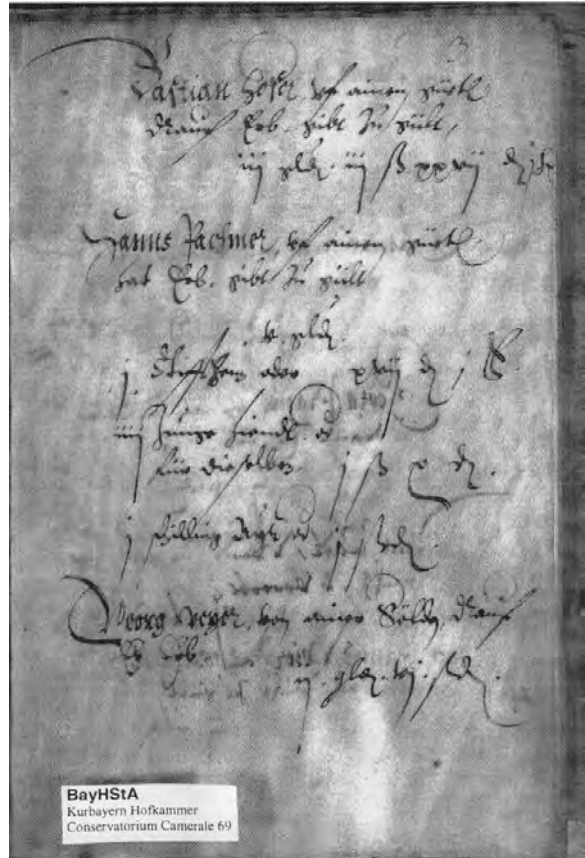 Bastian Hofer, vf ainem güetl
drauf Erb. gibt Zu gült,
iiij gld. iij ß xxvij d
Hanns Pachmer, vf ainem güetl
hat Erb. gibt Zu gült
v. gld.
j. oder xviij d j
iiij Junge hiendl. od
für dieselben. j ß x d.
j schilling Ayr, od
Georg, von ainer Söldn drauf
Erb.
ij. gld. vj. ß d.
BayHStA
Kurbayern Hofkammer
Conservatorium Camerale 69